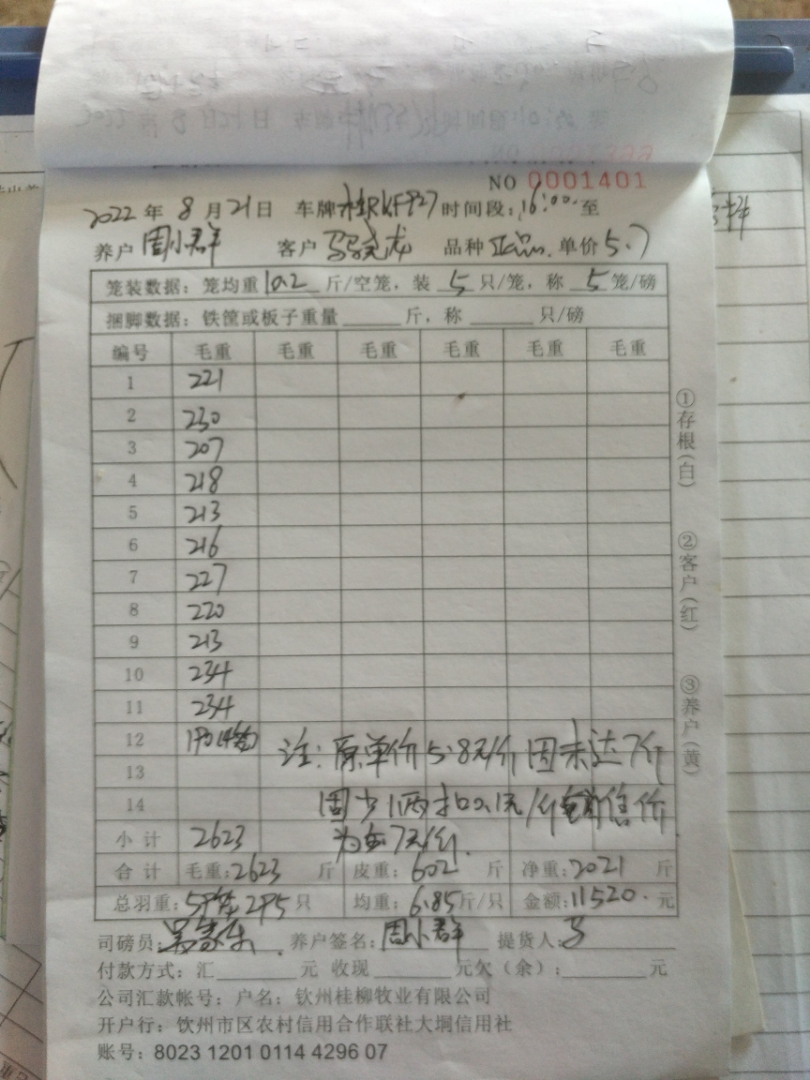 NO 0001401
2022 年 8 月 21 日 车牌 桂RKF827 时间段:16:00 至
养户 周小群 客户 马晓龙 品种 正品 单价 5.7
笼装数据:笼均重 10.2 斤/空笼,装 5 只/笼,称 5 笼/磅
捆脚数据:铁筐或板子重量 斤,称 只/磅
编号 毛重 毛重 毛重 毛重 毛重 毛重
1 221
2 230
3 207
4 218
5 213
6 216
7 227
8 220
9 213
10 234
11 234
12 190
注:原单价5.8元/斤因未达7斤
13
14
因少1两扣0.1元/斤 销售价
小计 2623
为5.7元/斤.
合计 毛重:2623 斤 皮重:602 斤 净重:2021 斤
总羽重: 295 只 均重:6.85 斤/只 金额:11520. 元
司磅员: 养户签名:周小群 提货人:马
付款方式:汇 元 收现 元欠(余): 元
公司汇款帐号:户名:钦州桂柳牧业有限公司
开户行:钦州市区农村信用合作联社大垌信用社
账号:8023 1201 0114 4296 07
①存根(白)
②客户(红)
③养户(黄)